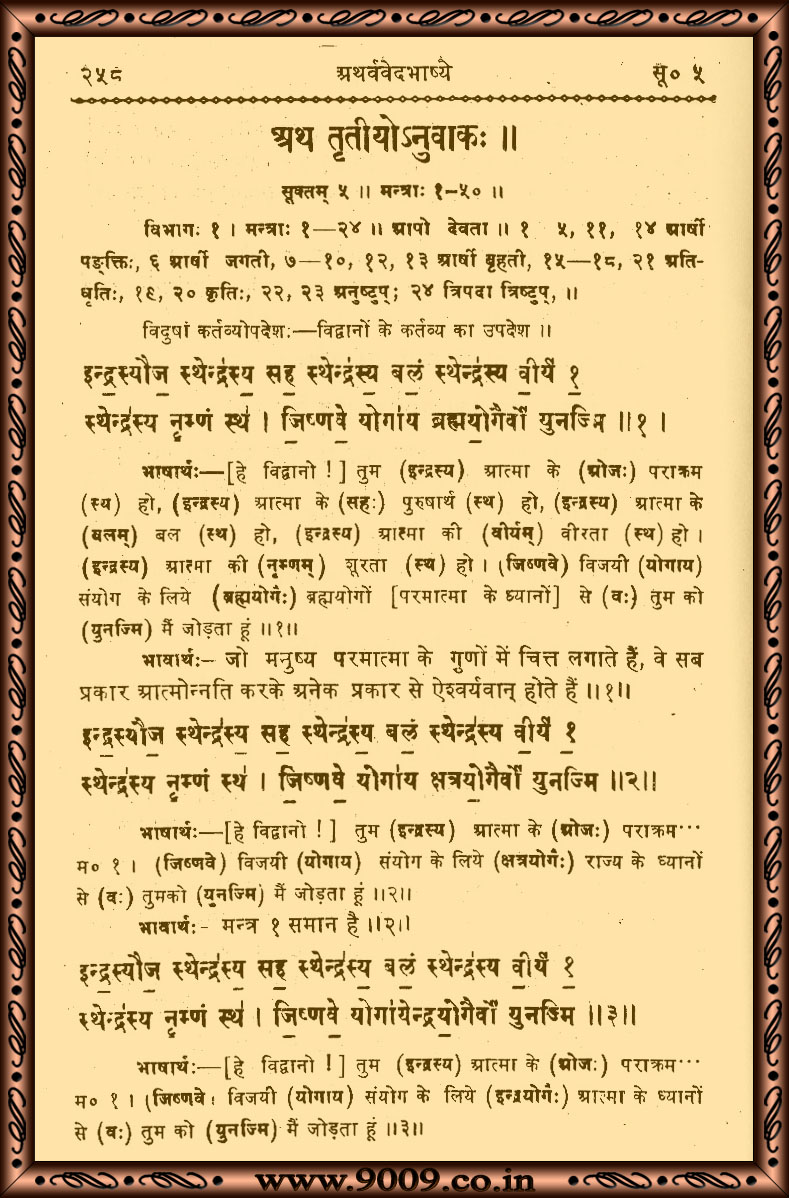 २५८ अथर्ववेदभाष्ये सू० ५
अथ तृतीयोऽनुवाकः ॥
सूक्तम् ५ ॥ मन्त्राः १–५० ॥
विभागः १ । मन्त्राः १—२४ ॥ आपो देवता ॥ १ ५, ११, १४ आर्षी
पङ्क्तिः, ६ आर्षी जगती, ७—१०, १२, १३ आर्षी बृहती, १५—१८, २१ अति-
धृतिः, १९, २० कृतिः, २२, २३ अनुष्टुप्; २४ त्रिपदा त्रिष्टुप्, ॥
विदुषां कर्तव्योपदेशः—विद्वानों के कर्तव्य का उपदेश ॥
इन्द्र॒स्यौज॒ स्थेन्द्र॑स्य॒ सह॒ स्थेन्द्र॑स्य॒ बलं॒ स्थेन्द्र॑स्य वी॒र्यं॑ १॒
स्थेन्द्र॑स्य नृ॒म्णं स्थ॑ । जि॒ष्णवे॒ योगा॑य ब्रह्मयो॒गैर्वो॑ युनज्मि ॥१ ।
भाषार्थः—[हे विद्वानो !] तुम (इन्द्रस्य) आत्मा के (ओजः) पराक्रम
(स्थ) हो, (इन्द्रस्य) आत्मा के (सहः) पुरुषार्थ (स्थ) हो, (इन्द्रस्य) आत्मा के
(बलम्) बल (स्थ) हो, (इन्द्रस्य) आत्मा की (वीर्यम्) वीरता (स्थ) हो ।
(इन्द्रस्य) आत्मा की (नृम्णम्) शूरता (स्थ) हो । (जिष्णवे) विजयी (योगाय)
संयोग के लिये (ब्रह्मयोगैः) ब्रह्मयोगों [परमात्मा के ध्यानों] से (वः) तुम को
(युनज्मि) मैं जोड़ता हूं ॥१॥
भावार्थः– जो मनुष्य परमात्मा के गुणों में चित्त लगाते हैं, वे सब
प्रकार आत्मोन्नति करके अनेक प्रकार से ऐश्वर्यवान् होते हैं ॥१॥
इन्द्र॒स्यौज॒ स्थेन्द्र॑स्य॒ सह॒ स्थेन्द्र॑स्य॒ बलं॒ स्थेन्द्र॑स्य वी॒र्यं॑ १॒
स्थेन्द्र॑स्य नृ॒म्णं स्थ॑ । जि॒ष्णवे॒ योगा॑य क्षत्रयो॒गैर्वो॑ युनज्मि ॥२॥
भाषार्थः—[हे विद्वानो !] तुम (इन्द्रस्य) आत्मा के (ओजः) पराक्रम···
म० १ । (जिष्णवे) विजयी (योगाय) संयोग के लिये (क्षत्रयोगैः) राज्य के ध्यानों
से (वः) तुमको (युनज्मि) मैं जोड़ता हूं ॥२॥
भावार्थः- मन्त्र १ समान है ॥२॥
इन्द्र॒स्यौज॒ स्थेन्द्र॑स्य॒ सह॒ स्थेन्द्र॑स्य॒ बलं॒ स्थेन्द्र॑स्य वी॒र्यं॑ १॒
स्थेन्द्र॑स्य नृ॒म्णं स्थ॑ । जि॒ष्णवे॒ योगा॑येन्द्रयो॒गैर्वो॑ युनज्मि ॥३॥
भाषार्थः—[हे विद्वानो !] तुम (इन्द्रस्य) आत्मा के (ओजः) पराक्रम···
म० १ । (जिष्णवे। विजयी (योगाय) संयोग के लिये (इन्द्रयोगैः) आत्मा के ध्यानों
से (वः) तुम को (युनज्मि) मैं जोड़ता हूं ॥३॥
www.9009.co.in